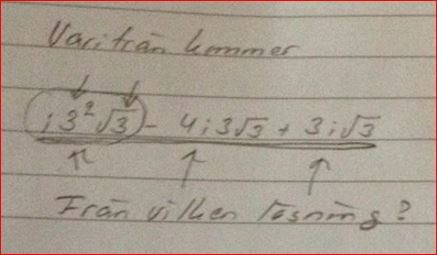 Varifrån kommer
i3²√3 - 4i3√3 + 3i√3
Från vilken lösning?